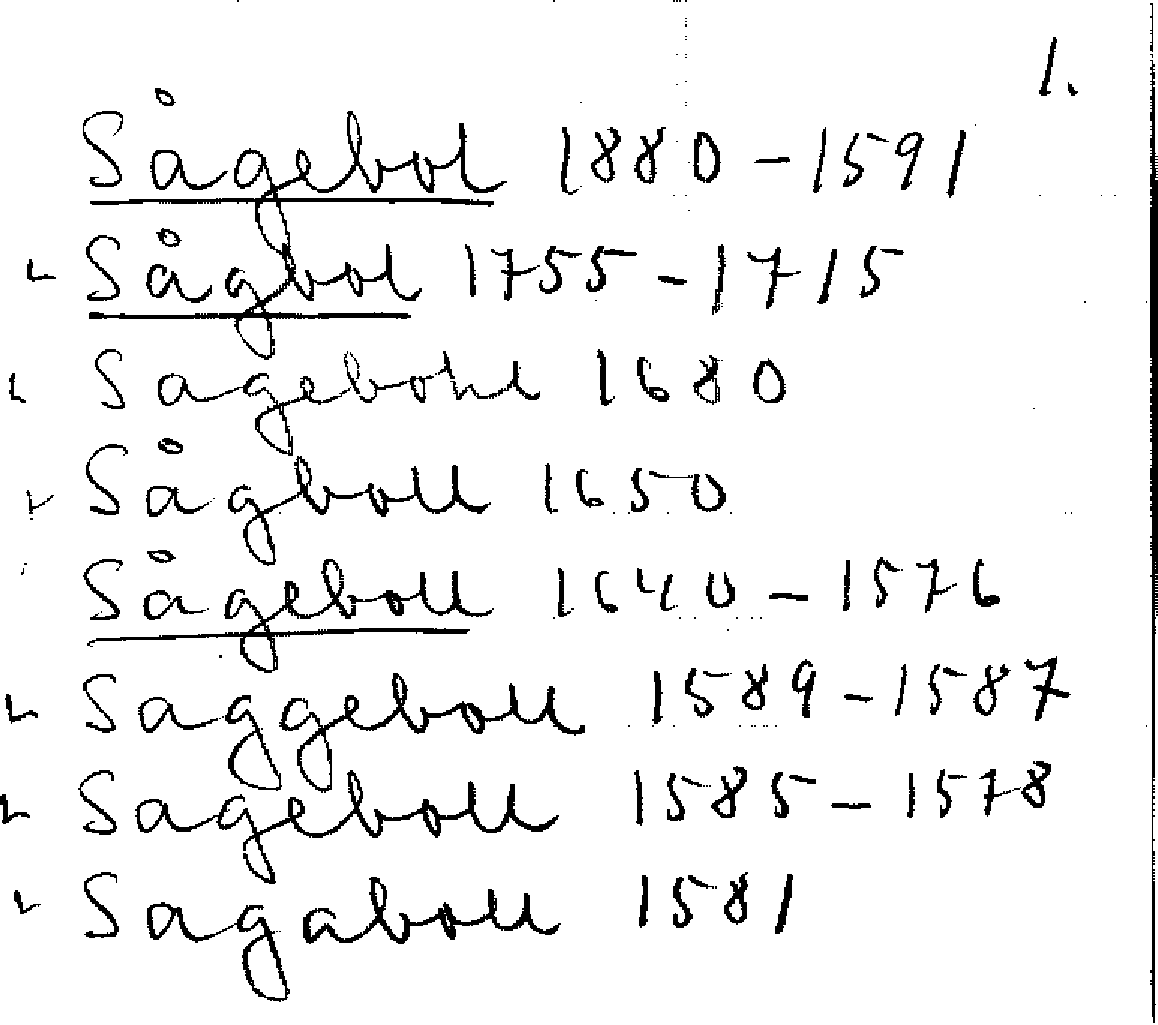 1.
Sågebol 1880-1591
Sågbol 1755-1715
Sagebohl 1680
Sågboll 1650
Sågeboll 1640-1576
Saggeboll 1589-1587
Sageboll 1585-1578
Sagaboll 1581